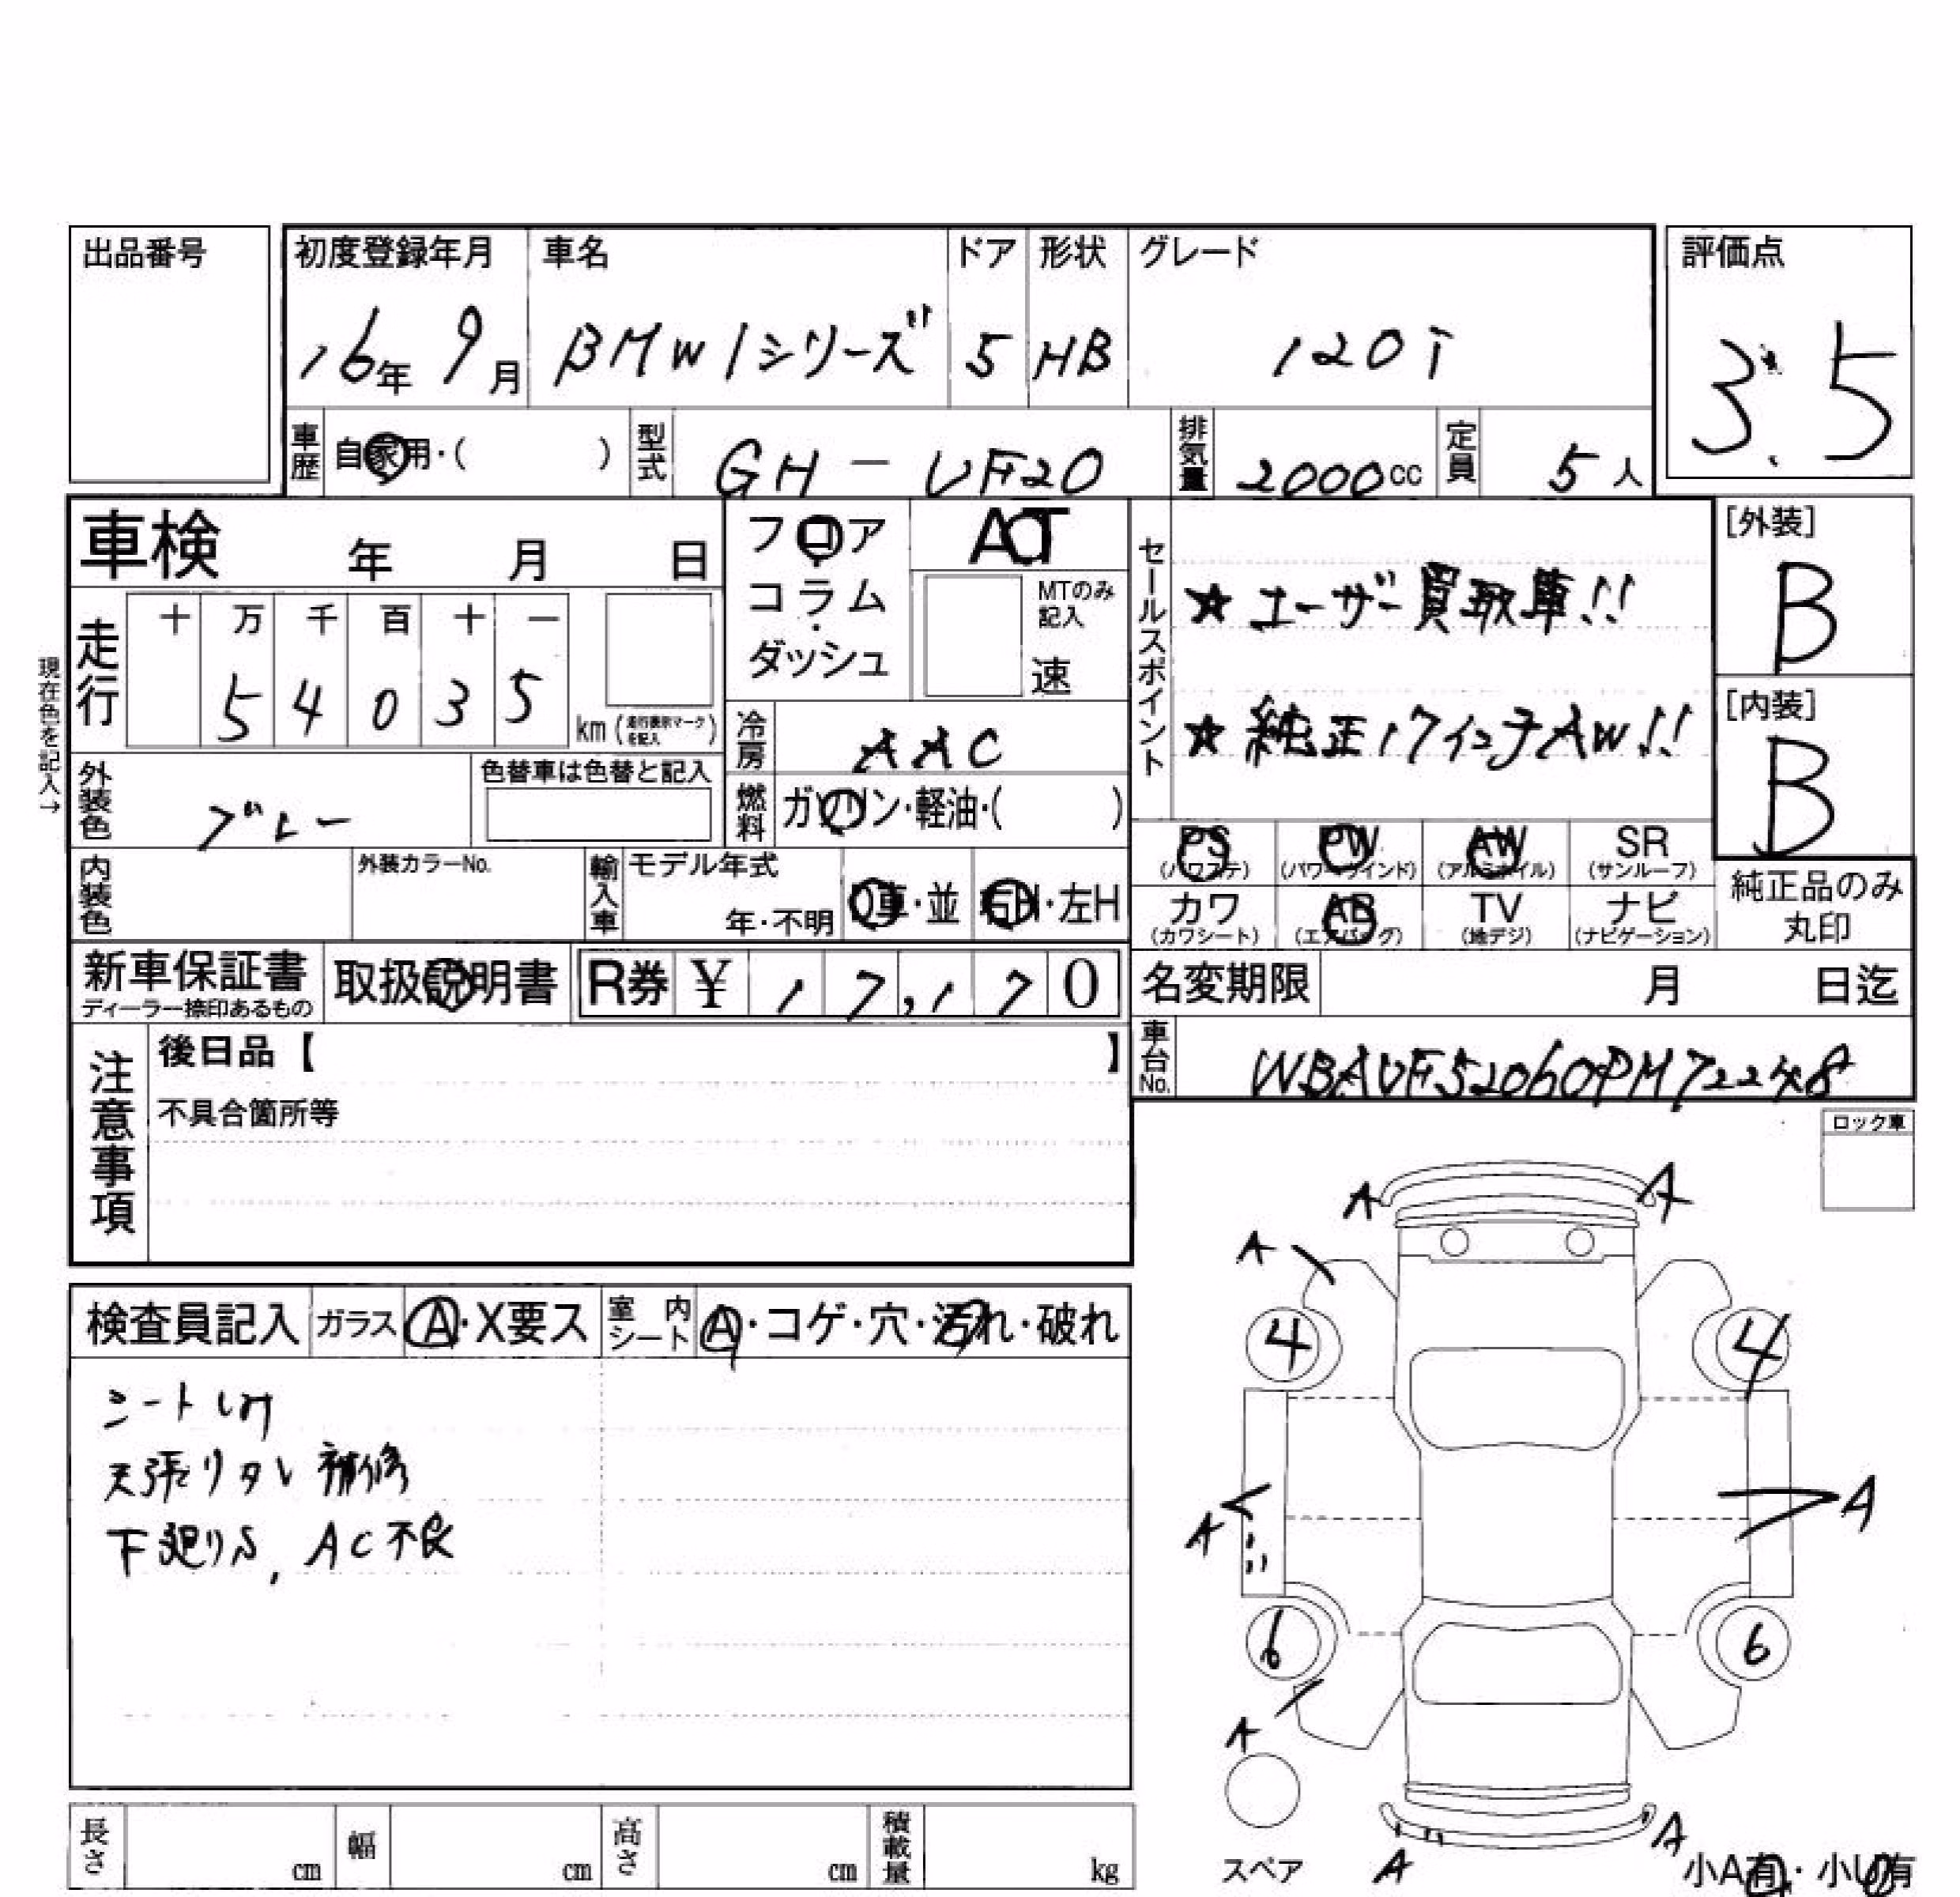 出品番号
初度登録年月 車名 ドア 形状 グレード 評価点
16年 9月 BMW 1シリーズ 5 HB 120i 3.5
車歴 自家用・( ) 型式 GH-UF20 排気量 2000cc 定員 5人
車検 年 月 日
フロア・コラム・ダッシュ
AT
MTのみ記入
速
セールスポイント
★ユーザー買取車!!
★純正17インチAW!!
[外装]
B
[内装]
B
現在色を記入→
走行 十 万 千 百 十 一
5 4 0 3 5 km (走行表示マークを記入)
冷房 AAC
外装色 グレー
色替車は色替と記入
燃料 ガソリン・軽油・( )
PS (パワステ) PW (パワーウインド) AW (アルミホイル) SR (サンルーフ)
カワ (カワシート) AB (エアバッグ) TV (地デジ) ナビ (ナビゲーション)
純正品のみ
丸印
内装色 外装カラーNo. 輸入車 モデル年式
年・不明 D車・並 右H・左H
新車保証書
ディーラー捺印あるもの
取扱説明書 R券 ¥ 17,170
名変期限 月 日迄
車台No. WBAUF52060PM72248
注意事項
後日品【 】
不具合箇所等
ロック車
検査員記入 ガラス A・X要ス 室内シート A・コゲ・穴・汚れ・破れ
シートスレ
天張りタレ 補修
下廻りS, AC不良
A A
A
4 4
A A
6 6
A
A A
スペア
小A有・小U有
長さ cm 幅 cm 高さ cm 積載量 kg